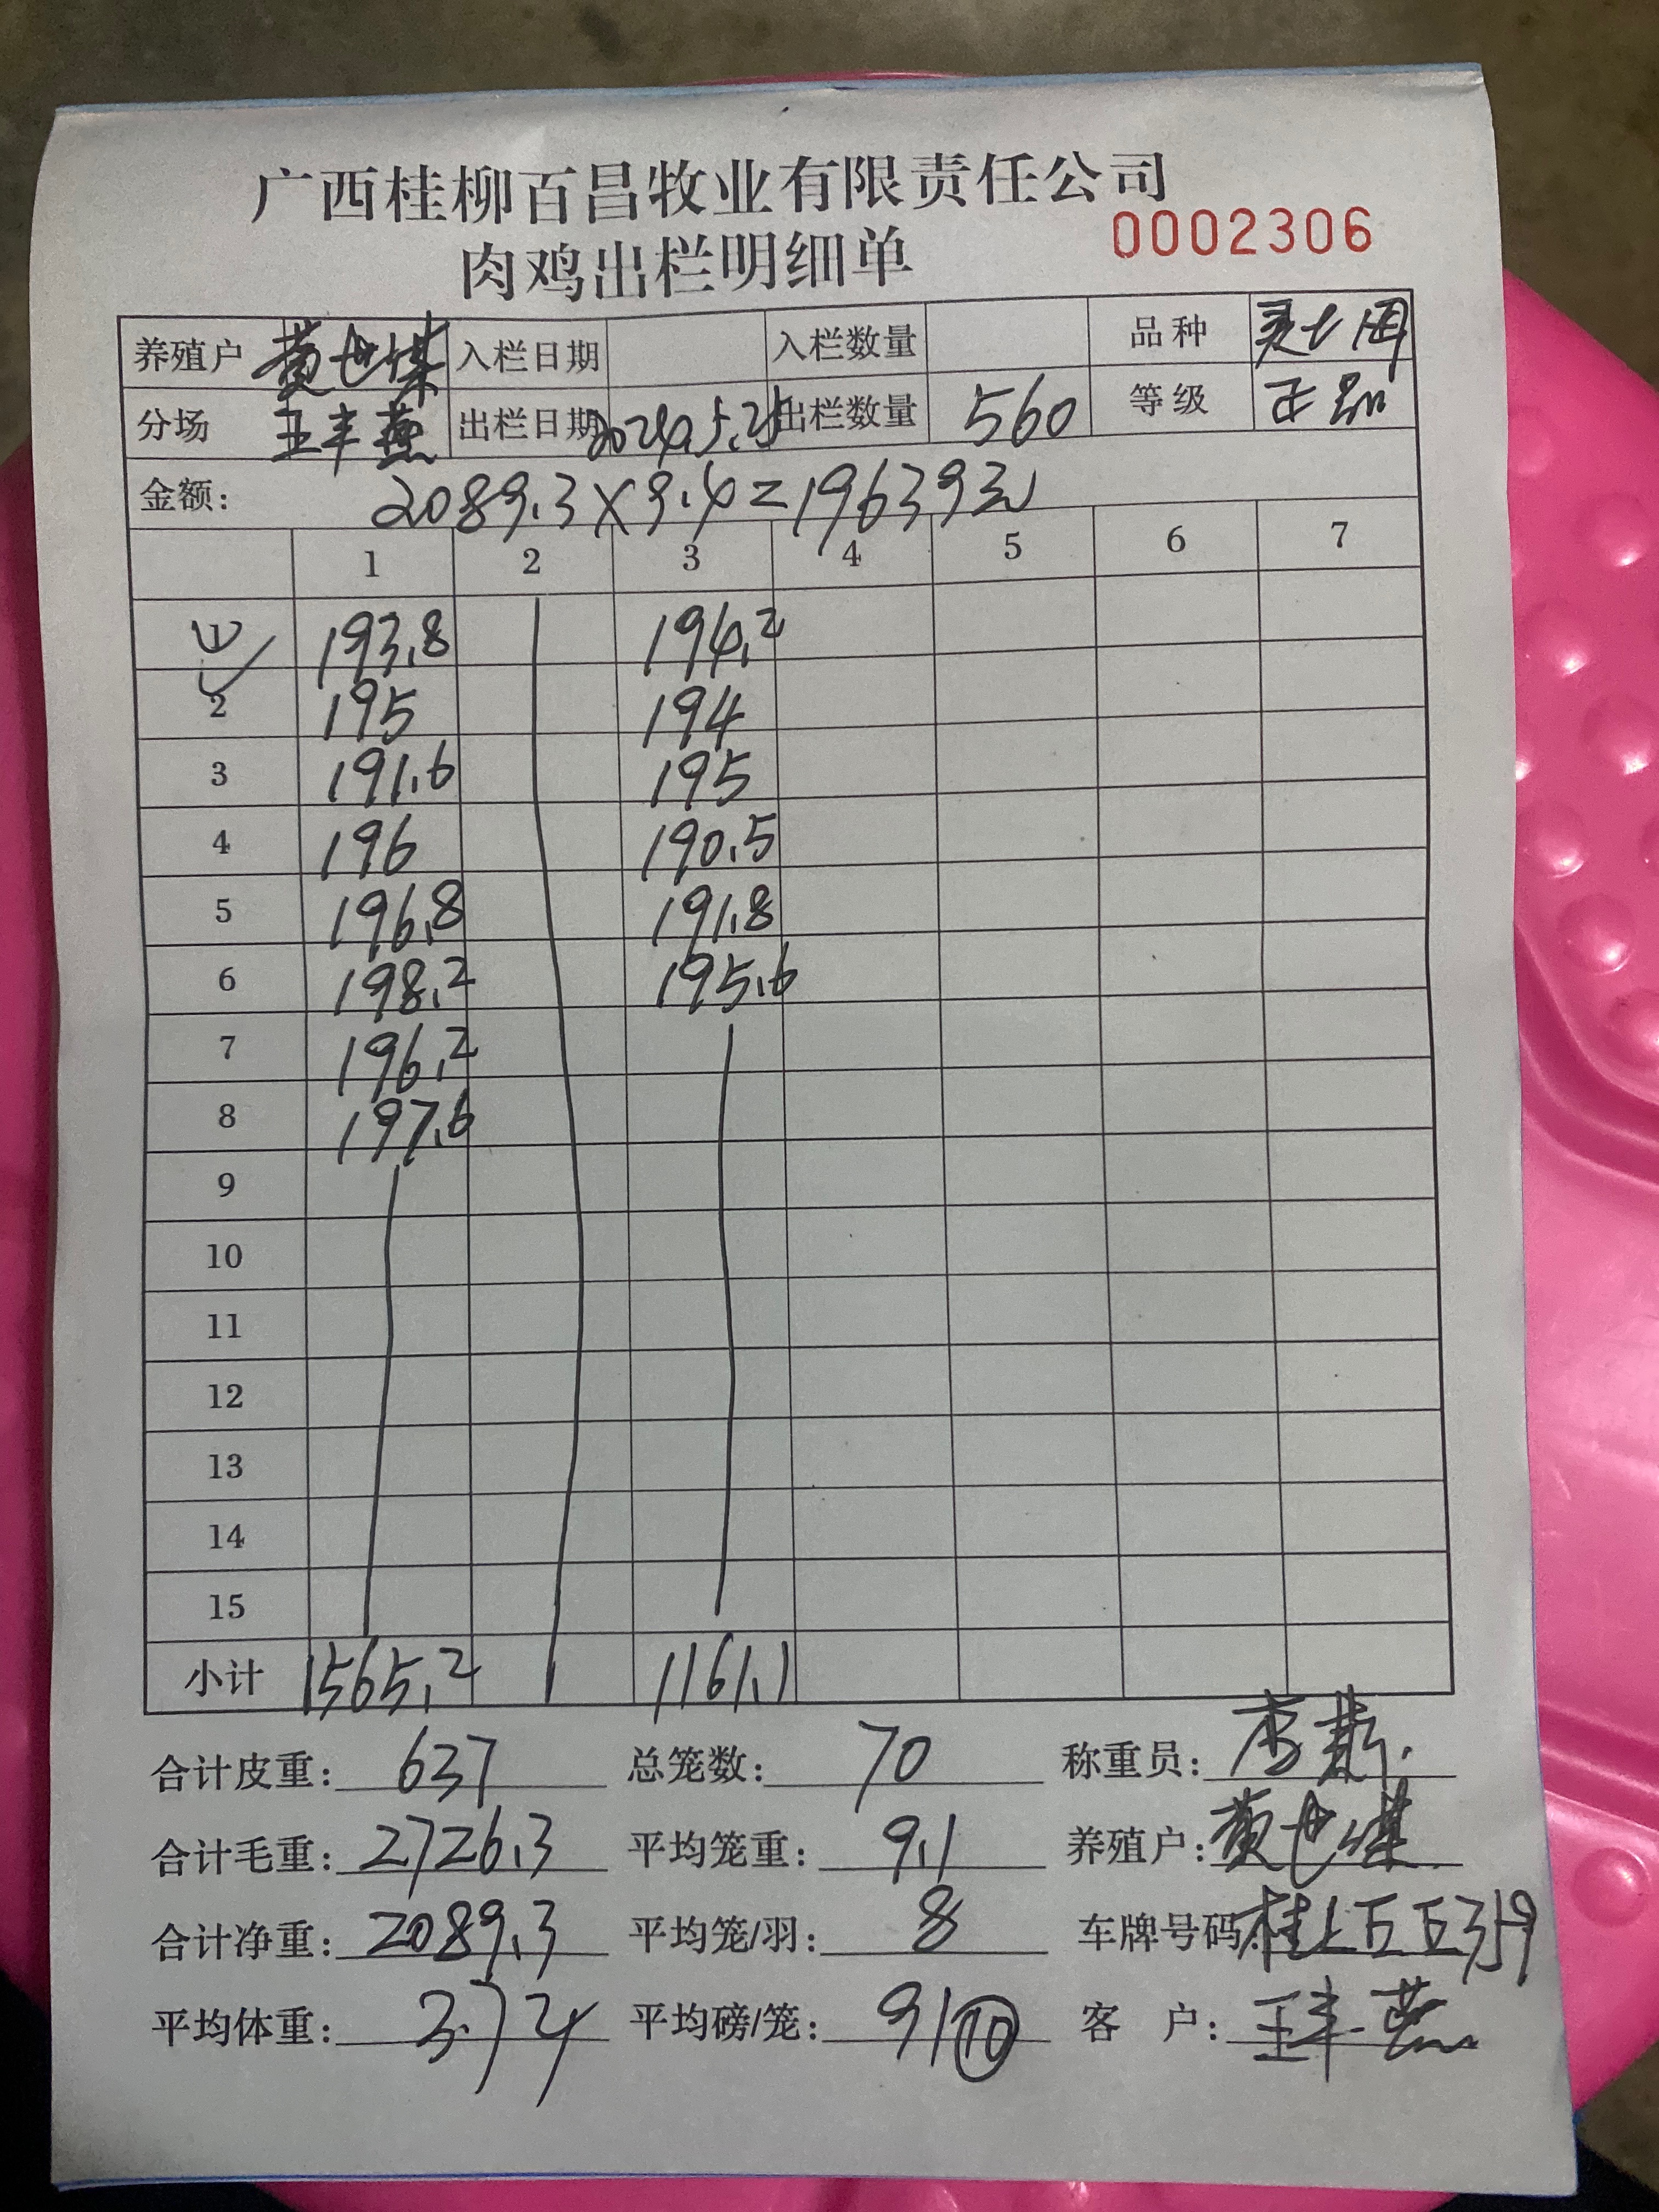 广西桂柳百昌牧业有限责任公司
肉鸡出栏明细单 0002306
养殖户 黄世 入栏日期 入栏数量 品种
分场 王丰燕 出栏日期 2024.5.25 出栏数量 560 等级 正
金额: 2089.3×9.4=19639元
1 2 3 4 5 6 7
① 193.8 194.2
2 195 194
3 191.6 195
4 196 190.5
5 196.8 191.8
6 198.2 195.6
7 196.2
8 197.6
9
10
11
12
13
14
15
小计 1565.2 1161.1
合计皮重: 637 总笼数: 70 称重员: 李
合计毛重: 2726.3 平均笼重: 9.1 养殖户: 黄世
合计净重: 2089.3 平均笼/羽: 8 车牌号码: 桂
平均体重: 3.74 平均磅/笼: 9/⑩ 客户: 王丰燕